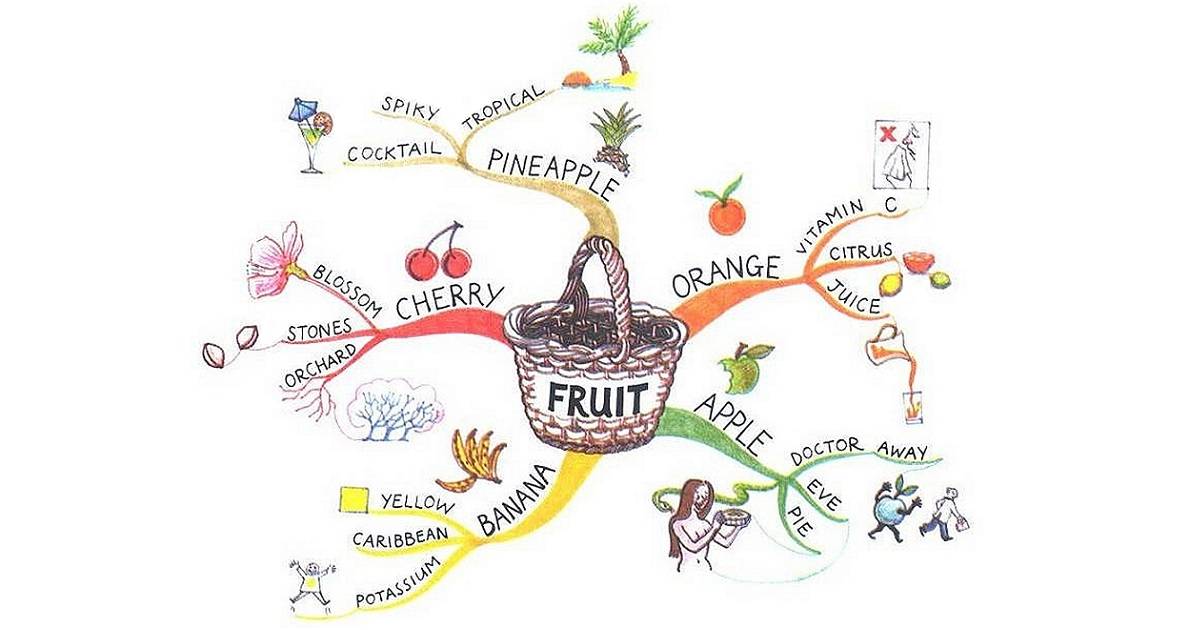 FRUIT
PINEAPPLE
SPIKY
TROPICAL
COCKTAIL
ORANGE
VITAMIN C
X
CITRUS
JUICE
APPLE
DOCTOR AWAY
EVE
PIE
BANANA
YELLOW
CARIBBEAN
POTASSIUM
CHERRY
BLOSSOM
STONES
ORCHARD